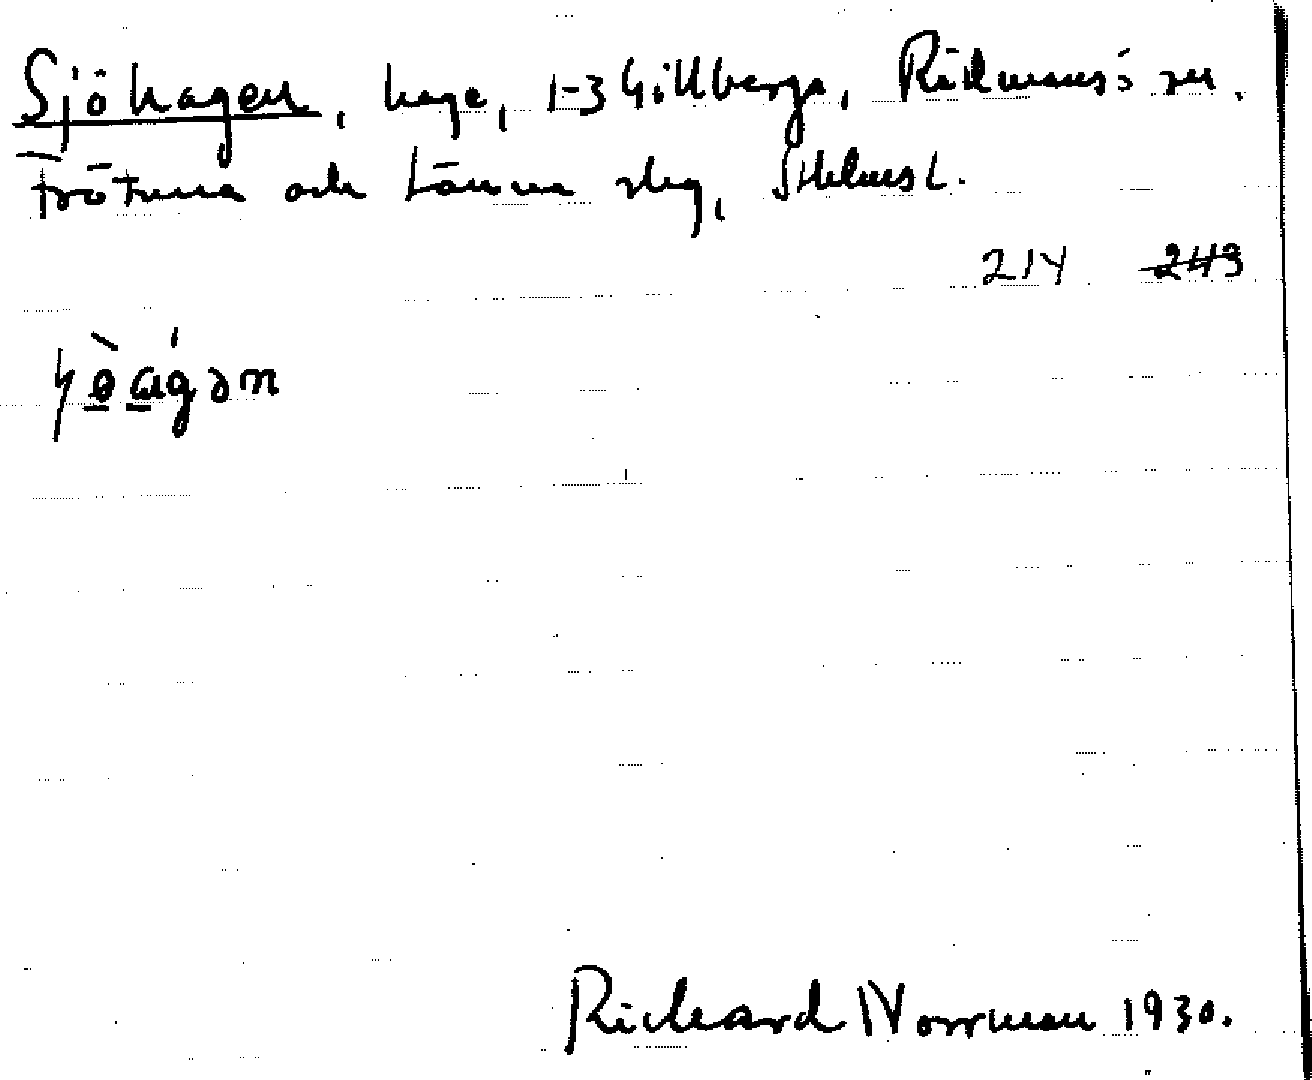 Sjöhagen, hage, 1-3 Gillberga, Rådmansö sn.
Frötuna och Länna slg, Sthlms L.
214 243
Richard Norrman 1930.